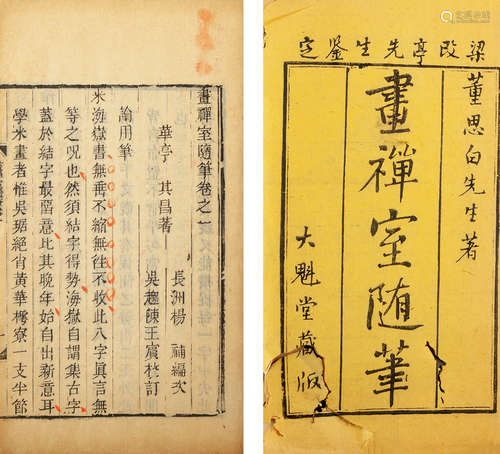 畫禪室隨筆卷之一
華亭 其昌著
長洲楊 補編次
吳趨陳王賓挍訂
論用筆
米海嶽書無垂不縮無往不收此八字真言無
等之呪也然須結字得勢海嶽自謂集古字
蓋於結字最留意比其晚年始自出新意耳
學米書者惟吳琚絕肖黃華樗寮一支半節
梁改亭先生鉴定
董思白先生著
畫禪室随筆
大魁堂藏版